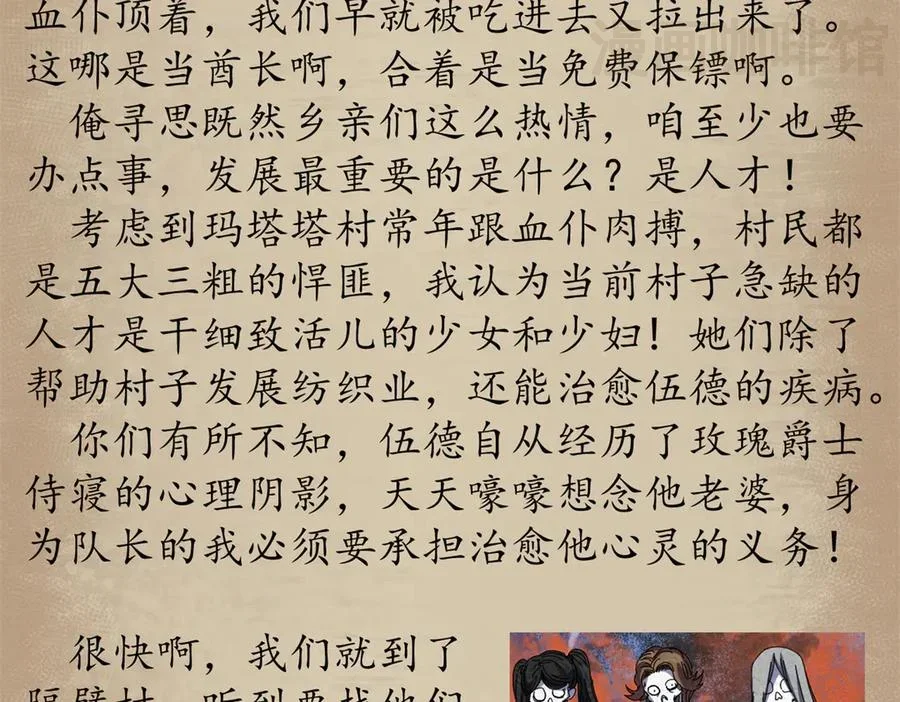 血仆顶着，我们早就被吃进去又拉出来了。
这哪是当酋长啊，合着是当免费保镖啊。
俺寻思既然乡亲们这么热情，咱至少也要
办点事，发展最重要的是什么？是人才！
考虑到玛塔塔村常年跟血仆肉搏，村民都
是五大三粗的悍匪，我认为当前村子急缺的
人才是干细致活儿的少女和少妇！她们除了
帮助村子发展纺织业，还能治愈伍德的疾病。
你们有所不知，伍德自从经历了玫瑰爵士
侍寝的心理阴影，天天嚎嚎想念他老婆，身
为队长的我必须要承担治愈他心灵的义务！
很快啊，我们就到了
隔壁村，听到要找他们
漫画咖啡馆